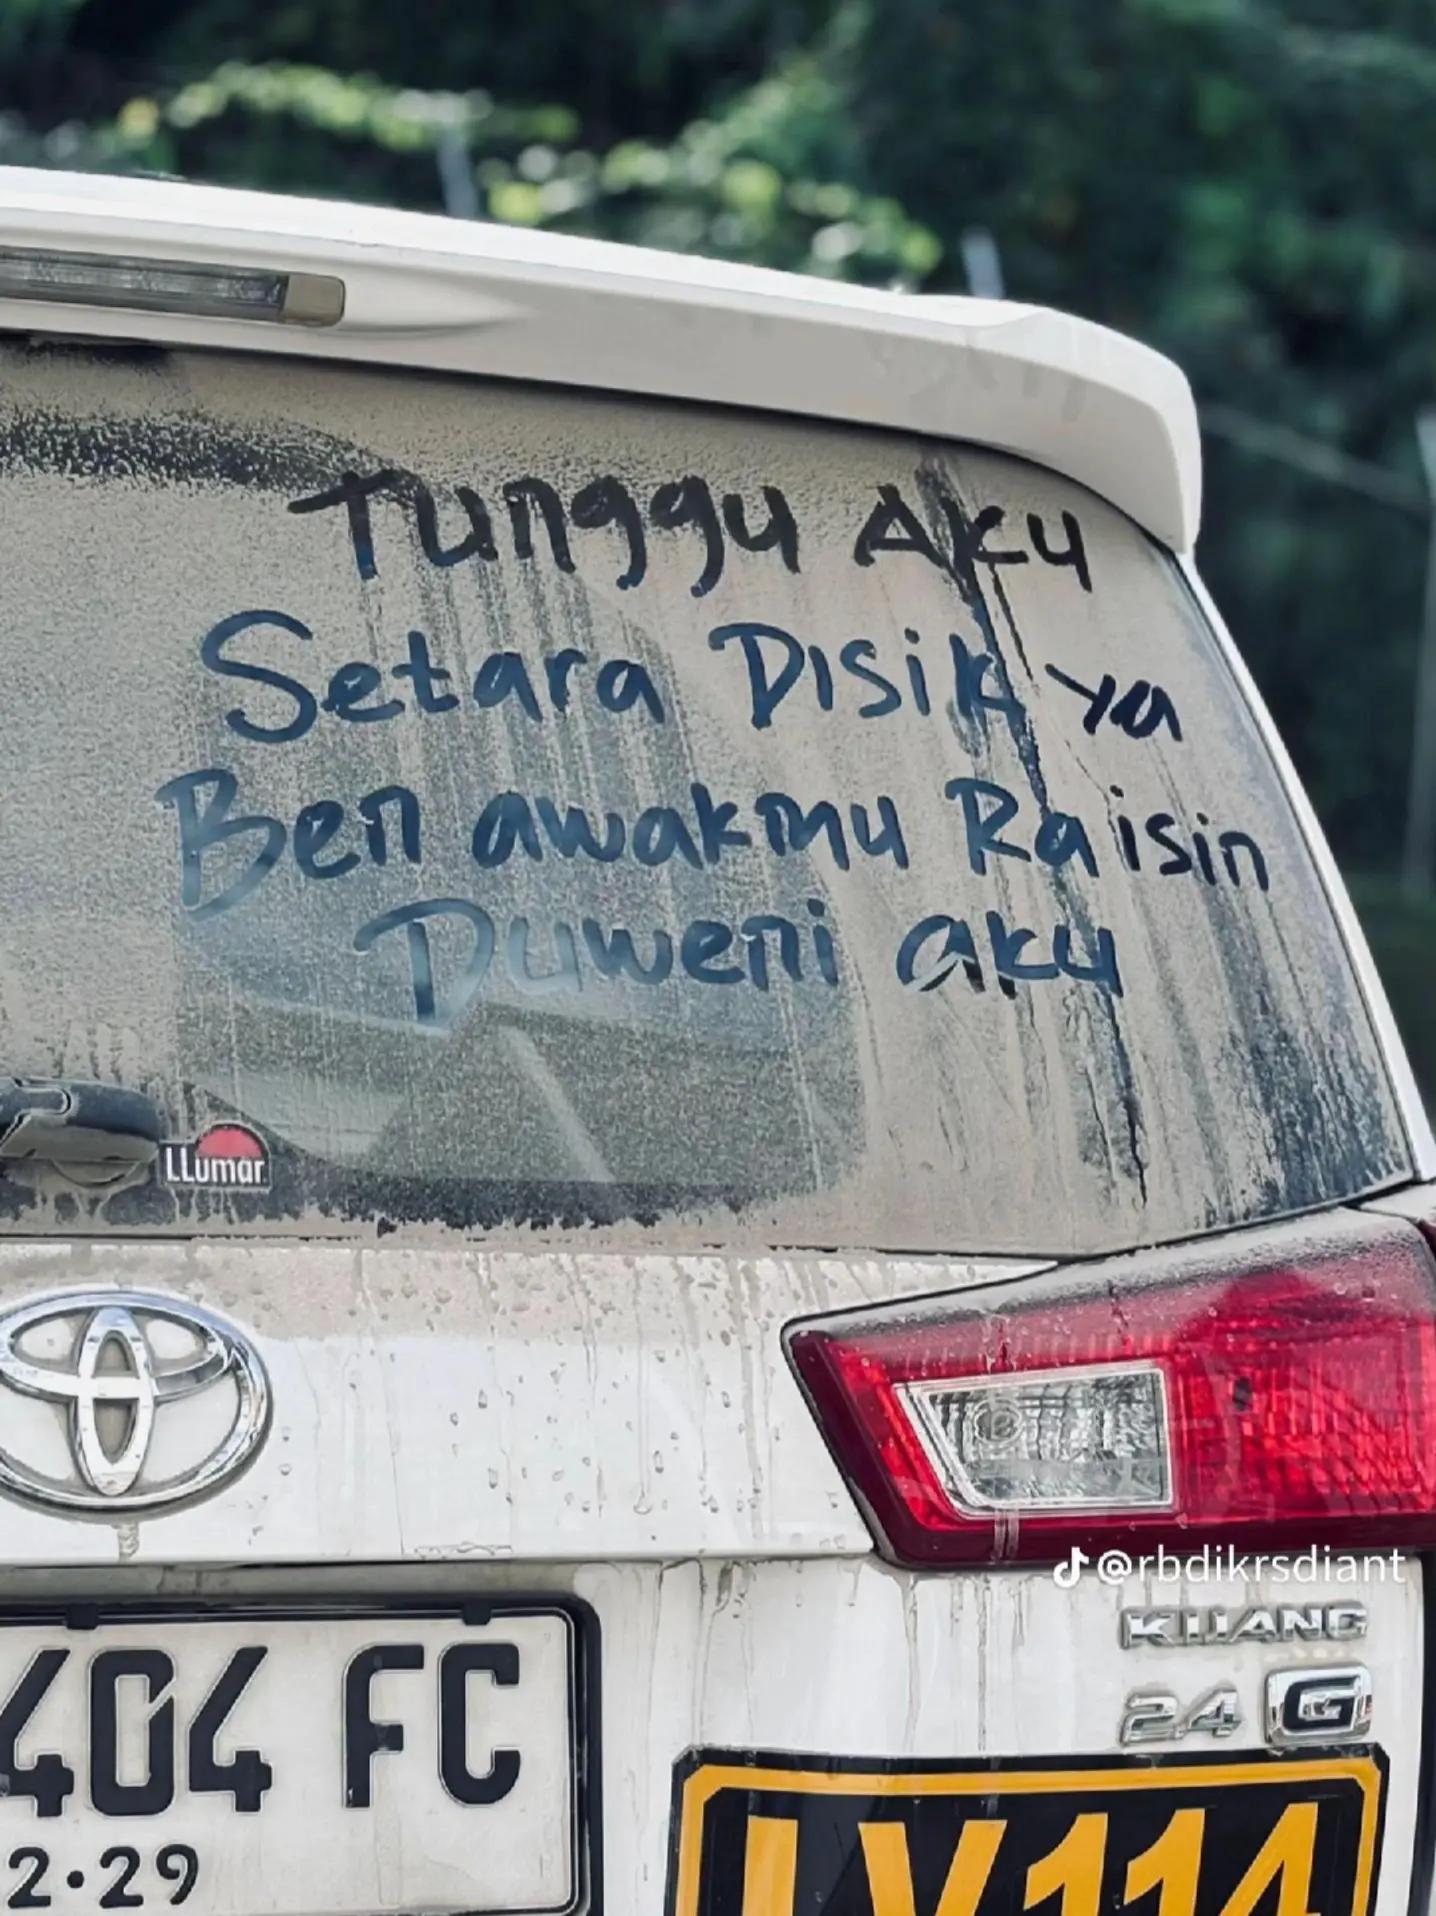 Tunggu Aku
Setara Disik ya
Ben awakmu Raisin
Duweni aku
LLumar
@rbdikrsdiant
KIJANG
2.4 G
404 FC
2·29
LV114